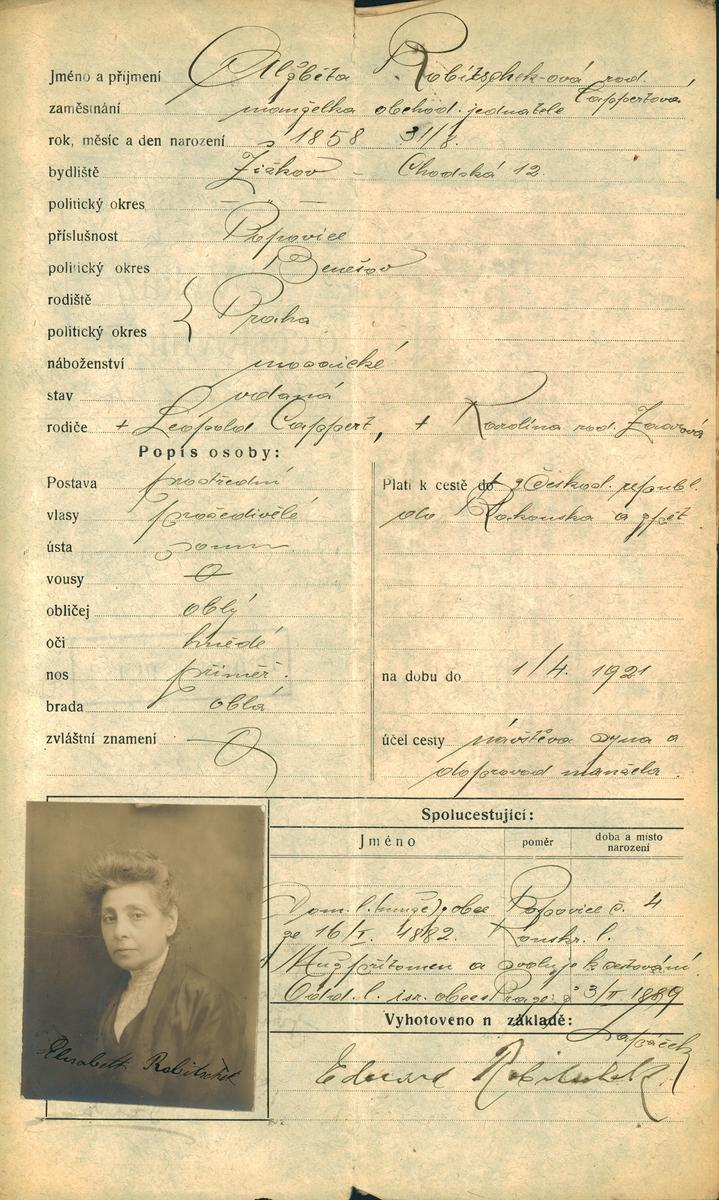 Jméno a příjmení Alžběta Robitschek-ová rod.
Cappertová
zaměstnání manželka obchod. jednatele
rok, měsíc a den narození 1858 31/8.
bydliště Žižkov - Chodská 12.
politický okres — " —
příslušnost Popovice
politický okres Benešov
rodiště
Praha
politický okres
náboženství mosaické
stav vdaná
rodiče + Leopold Cappert, + Karolina rod.
Popis osoby:
Postava prostřední
vlasy prošedivělé
ústa
vousy
obličej oblý
oči hnědé
nos přiměř.
brada oblá
zvláštní znamení
Platí k cestě do z Českosl. republ.
do Rakouska a zpět
na dobu do 1/4. 1921
účel cesty návštěva syna a
doprovod manžela.
Spolucestující:
Jméno poměr doba a místo narození
Dom. l. (manž.) obce Popovice č. 4
ze 16/I. 1882. Konskr. l.
Muž přítomen a svoluje k cestování.
Odd. l. isr. obce Praze z 3/II 1889
Vyhotoveno n základě:
Eduard Robitschek
Elisabeth Robitschek